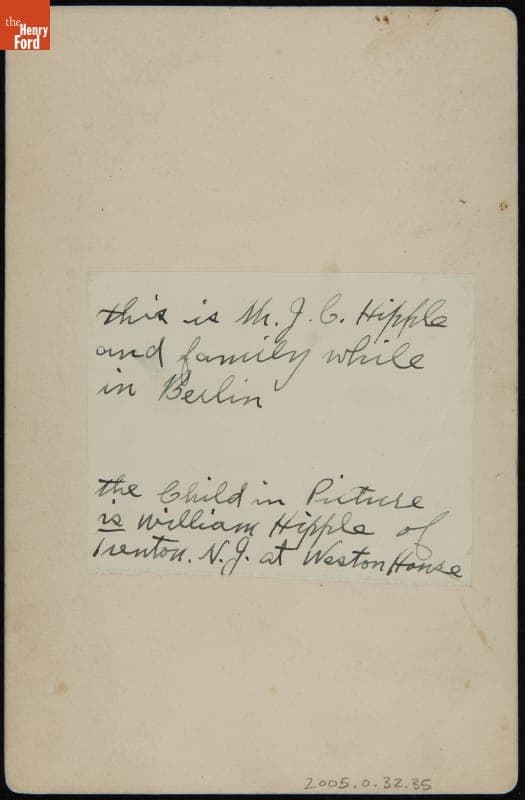 the
Henry
Ford
this is Mr. J. C. Hipple
and family while
in Berlin
the Child in Picture
is William Hipple of
Trenton. N. J. at Weston House
2005.0.32.35